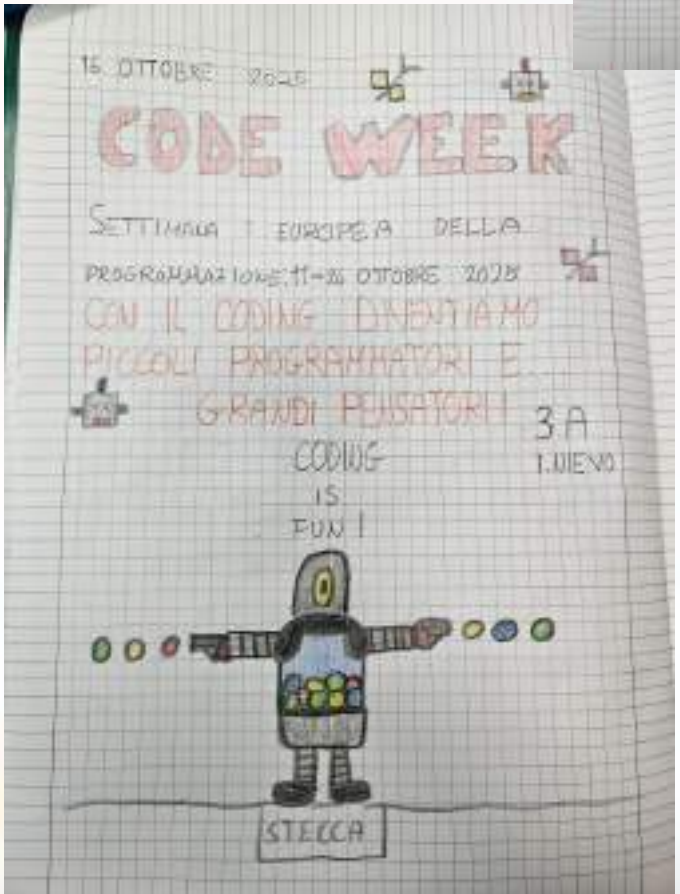 16 OTTOBRE 2025
CODE WEEK
SETTIMANA EUROPEA DELLA
PROGRAMMAZIONE. 11-26 OTTOBRE 2025
CON IL CODING DIVENTIAMO
PICCOLI PROGRAMMATORI E
GRANDI PENSATORI!
3A
I. NIEVO
CODING
IS
FUN!
STECCA